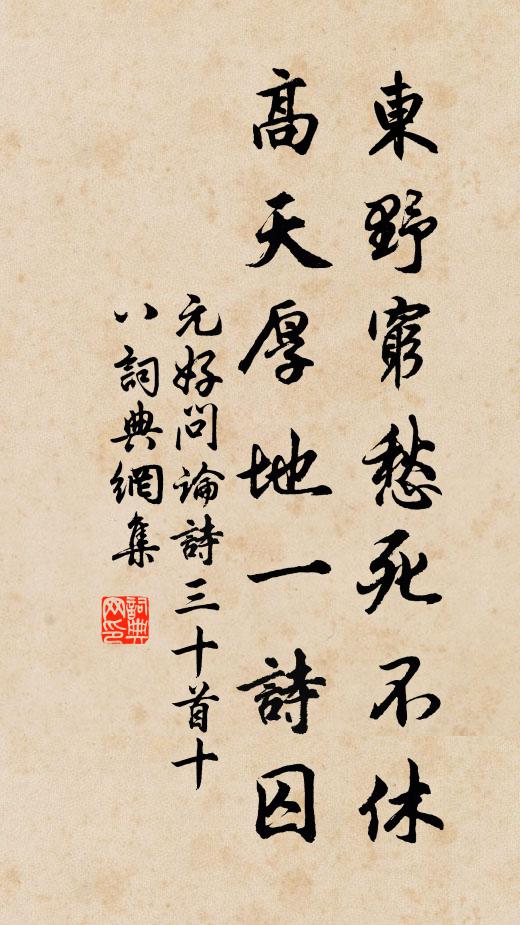 東野窮愁死不休
高天厚地一詩囚
元好問論詩三十首十
八詞典網集
詞典
网印